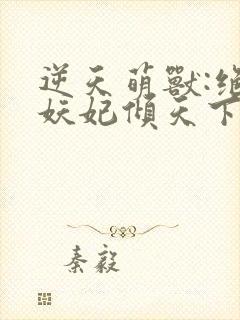 逆天萌獸:絕
妖妃傾天下
秦毅